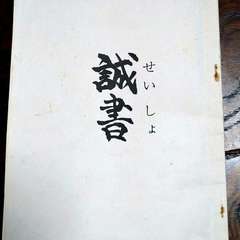 誠書
せいしょ